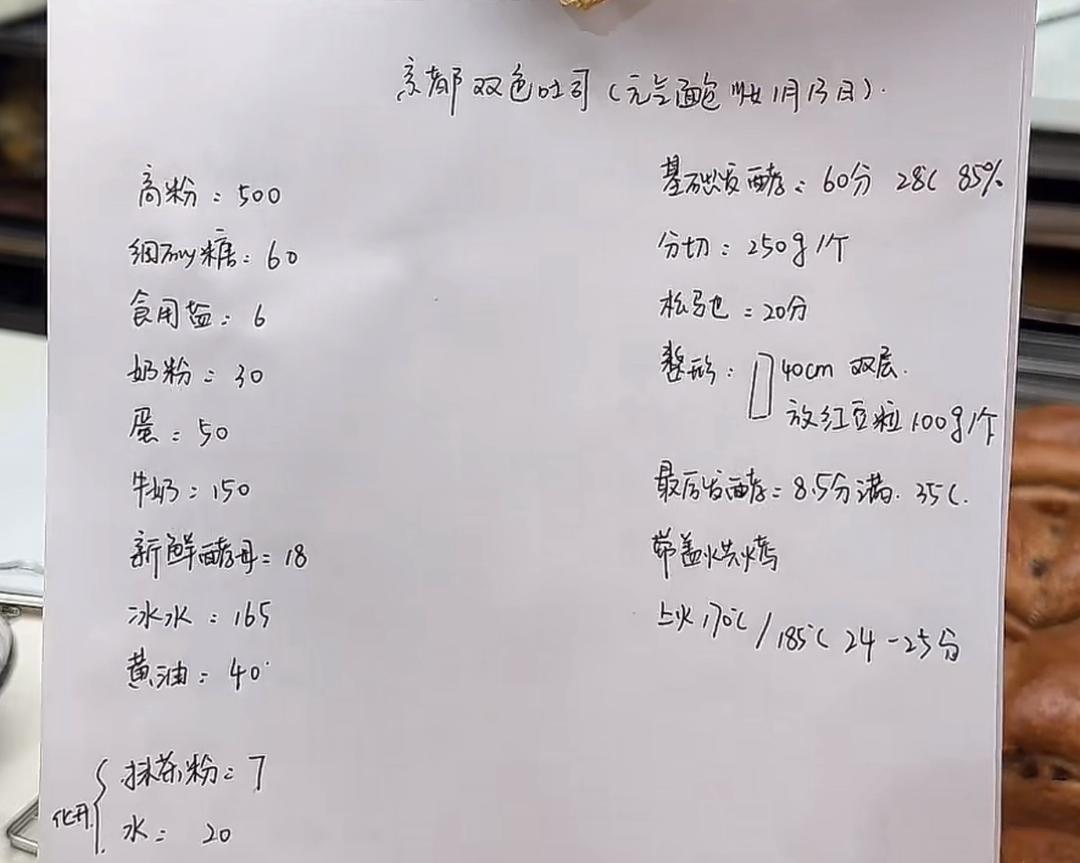 京都双色吐司(元气面包 1月13日).
高粉:500
细砂糖:60
食用盐:6
奶粉:30
蛋:50
牛奶:150
新鲜酵母:18
冰水:165
黄油:40
化开{抹茶粉:7
水:20
基础发酵:60分 28C 85%
分切:250g/个
松弛:20分
整形:40cm 双层.
放红豆粒100g/个
最后发酵:8.5分满. 35C.
带盖烘烤
上火170℃/185℃ 24-25分